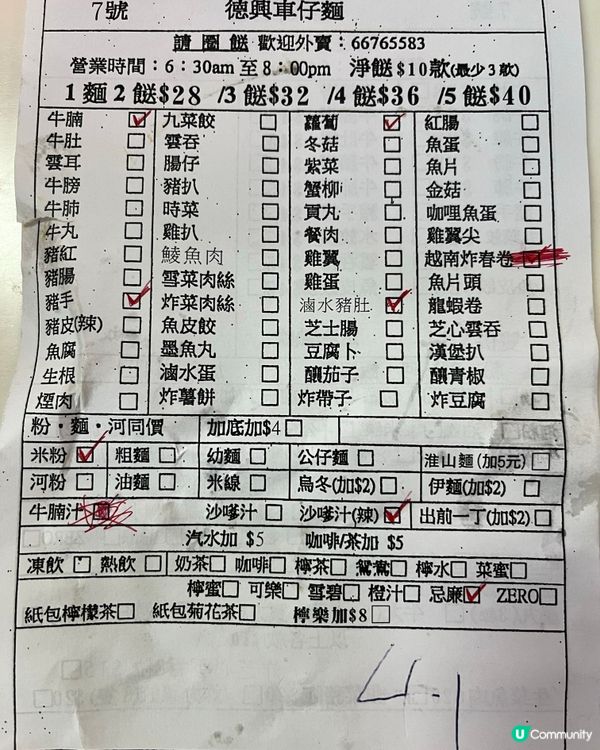 7號 德興車仔麵
請圈餸 歡迎外賣：66765583
營業時間：6：30am 至8：00pm 淨餸$10款(最少3款)
1麵2餸$28 /3餸$32 /4餸$36 /5餸$40
牛腩 九菜餃 蘿蔔 紅腸
牛肚 雲吞 冬菇 魚蛋
雲耳 腸仔 紫菜 魚片
牛膀 豬扒 蟹柳 金菇
牛肺 時菜 貢丸 咖哩魚蛋
牛丸 雞扒 餐肉 雞翼尖
豬紅 鯪魚肉 雞翼 越南炸春卷
豬腸 雪菜肉絲 雞蛋 魚片頭
豬手 炸菜肉絲 滷水豬肚 龍蝦卷
豬皮(辣) 魚皮餃 芝士腸 芝心雲吞
魚腐 墨魚丸 豆腐卜 漢堡扒
生根 滷水蛋 釀茄子 釀青椒
煙肉 炸薯餅 炸帶子 炸豆腐
粉·麵·河同價 加底加$4
米粉 粗麵 幼麵 公仔麵 淮山麵(加5元)
河粉 油麵 米線 烏冬(加$2) 伊麵(加$2)
牛腩汁 沙嗲汁 沙嗲汁(辣) 出前一丁(加$2)
汽水加 $5 咖啡/茶加 $5
凍飲 熱飲 奶茶 咖啡 檸茶 鴛鴦 檸水 菜蜜
檸蜜 可樂 雪碧 橙汁 忌廉 ZERO
紙包檸檬茶 紙包菊花茶 檸樂加$8
U Community